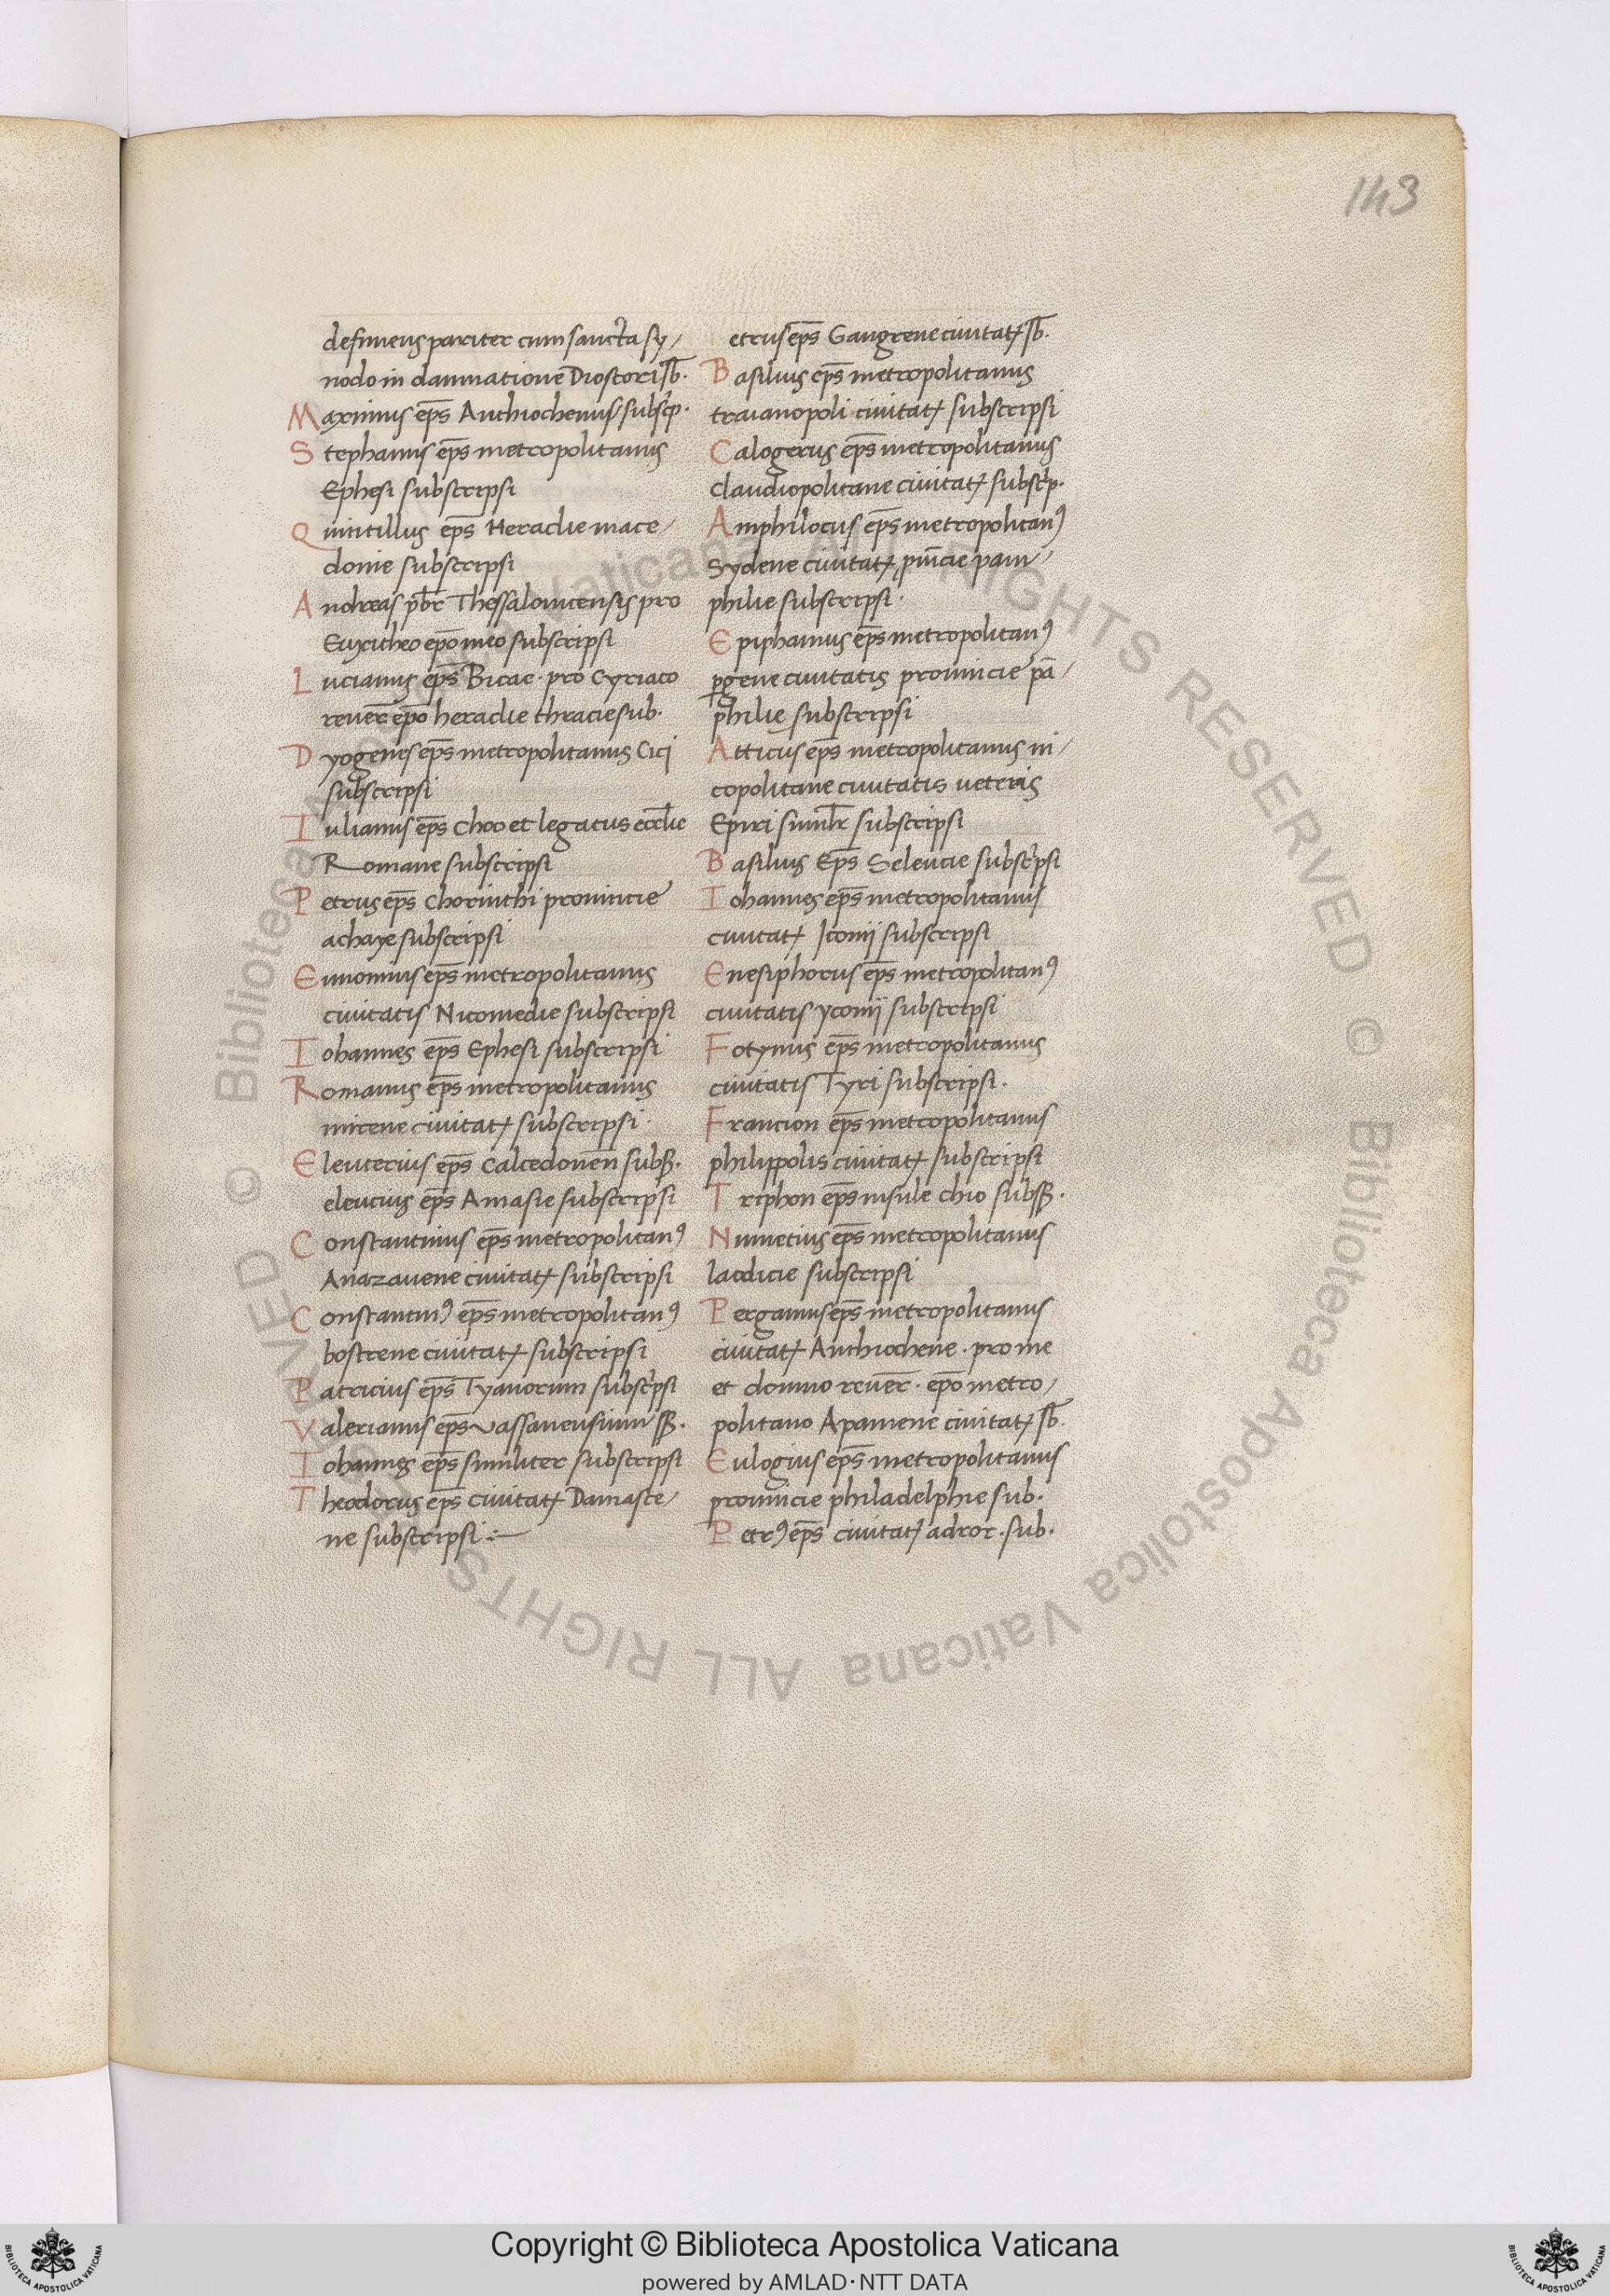 143
definiens pariter cum sancta sy/
nodo in damnatione Dioscori sb̄.
Maximus ep̄s Anthiochenus subscp.
Stephanus ep̄s metropolitanus
Ephesi subscripsi
Quintillus ep̄s Heraclie mace/
donie subscripsi
Andreas pb̄r Thessalonicensis pro
Euxitheo ep̄o meo subscripsi
Lucianus ep̄s Bicae. pro Cyriaco
reuer̄ ep̄o heraclie thracie sub.
Dyogenes ep̄s metropolitanus Cici
subscripsi
Iulianus ep̄s Choo et legatus eccl̄ie
Romane subscripsi
Petrus ep̄s Chorinthi prouincie
achaye subscripsi
Eunomius ep̄s metropolitanus
ciuitatis Nicomedie subscripsi
Iohannes ep̄s Ephesi subscripsi
Romanus ep̄s metropolitanus
mirene ciuitatꝭ subscripsi.
Eleuterius ep̄s Calcedonen̄ subß.
eleucius ep̄s Amasie subscripsi
Constantinus ep̄s metropolitanꝰ
Anazauene ciuitatꝭ subscripsi
Constantinꝰ ep̄s metropolitanꝰ
bostrene ciuitatꝭ subscripsi
Patricius ep̄s Tyanorum subscpsi
Valerianus ep̄s Vassanensium sß.
Iohannes ep̄s similiter subscripsi
Theodorus ep̄s ciuitatꝭ Damasce/
ne subscripsi :~
etrus ep̄s Gangrene ciuitatꝭ sb̄.
Basilius ep̄s metropolitanus
traianopoli ciuitatꝭ subscripsi
Calogerus ep̄s metropolitanus
claudiopolitane ciuitatꝭ subscp.
Amphilocus ep̄s metropolitanꝰ
Sydene ciuitatꝭ ꝓuīcie pam/
philie subscripsi.
Epiphanius ep̄s metropolitanꝰ
ꝑgene ciuitatis prouincie pā/
philie subscripsi
Atticus ep̄s metropolitanus ni/
copolitane ciuitatis ueteris
Epiri simil̄r subscripsi
Basilius Ep̄s Seleucie subscpsi
Iohannes ep̄s metropolitanus
ciuitatꝭ Iconij subscripsi
Enesiphorus ep̄s metropolitanꝰ
ciuitatis yconij subscripsi
Fotynus ep̄s metropolitanus
ciuitatis Tyri subscripsi.
Francion ep̄s metropolitanus
philippolis ciuitatꝭ subscripsi
Triphon ep̄s insule chio subsß.
Nunetius ep̄s metropolitanus
laodicie subscripsi
Pergamus ep̄s metropolitanus
ciuitatꝭ Anthiochene. pro me
et domno reuer̄. ep̄o metro/
politano Apamene ciuitatꝭ sb̄.
Eulogius ep̄s metropolitanus
prouincie philadelphie sub.
Petrꝰ ep̄s ciuitatꝭ adror. sub.
© Biblioteca Apostolica Vaticana ALL RIGHTS RESERVED © Biblioteca Apostolica Vaticana ALL RIGHTS RESERVED
Copyright © Biblioteca Apostolica Vaticana
powered by AMLAD·NTT DATA
BIBLIOTECA APOSTOLICA VATICANA
BIBLIOTECA APOSTOLICA VATICANA